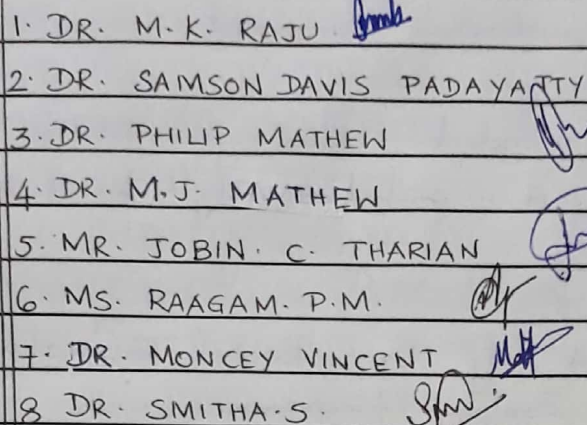 1. DR. M. K. RAJU
2. DR. SAMSON DAVIS PADAYATTY
3. DR. PHILIP MATHEW
4. DR. M.J. MATHEW
5. MR. JOBIN. C. THARIAN
6. MS. RAAGAM. P.M.
7. DR. MONCEY VINCENT
8 DR. SMITHA.S.